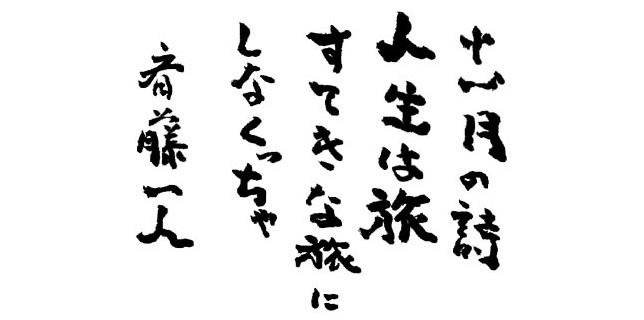 月の詩
人生は旅
すてきな旅に
しなくっちゃ
斉藤一人